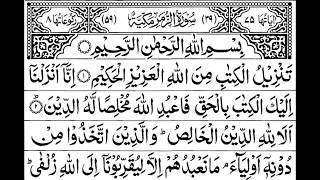 اٰيَاتُهَا ٧٥ (٣٩) سُوْرَةُ الزُّمَرِ مَكِّيَّةٌ (٥٩) رُكُوْعَاتُهَا ٨
بِسْمِ اللّٰهِ الرَّحْمٰنِ الرَّحِيْمِ ۝
تَنْزِيْلُ الْكِتٰبِ مِنَ اللّٰهِ الْعَزِيْزِ الْحَكِيْمِ ۝ اِنَّاۤ اَنْزَلْنَاۤ
اِلَيْكَ الْكِتٰبَ بِالْحَقِّ فَاعْبُدِ اللّٰهَ مُخْلِصًا لَّهُ الدِّيْنَ ۝
اَلَا لِلّٰهِ الدِّيْنُ الْخَالِصُ ؕ وَالَّذِيْنَ اتَّخَذُوْا مِنْ
دُوْنِهٖۤ اَوْلِيَآءَ ۘ مَا نَعْبُدُهُمْ اِلَّا لِيُقَرِّبُوْنَاۤ اِلَى اللّٰهِ زُلْفٰى ؕ